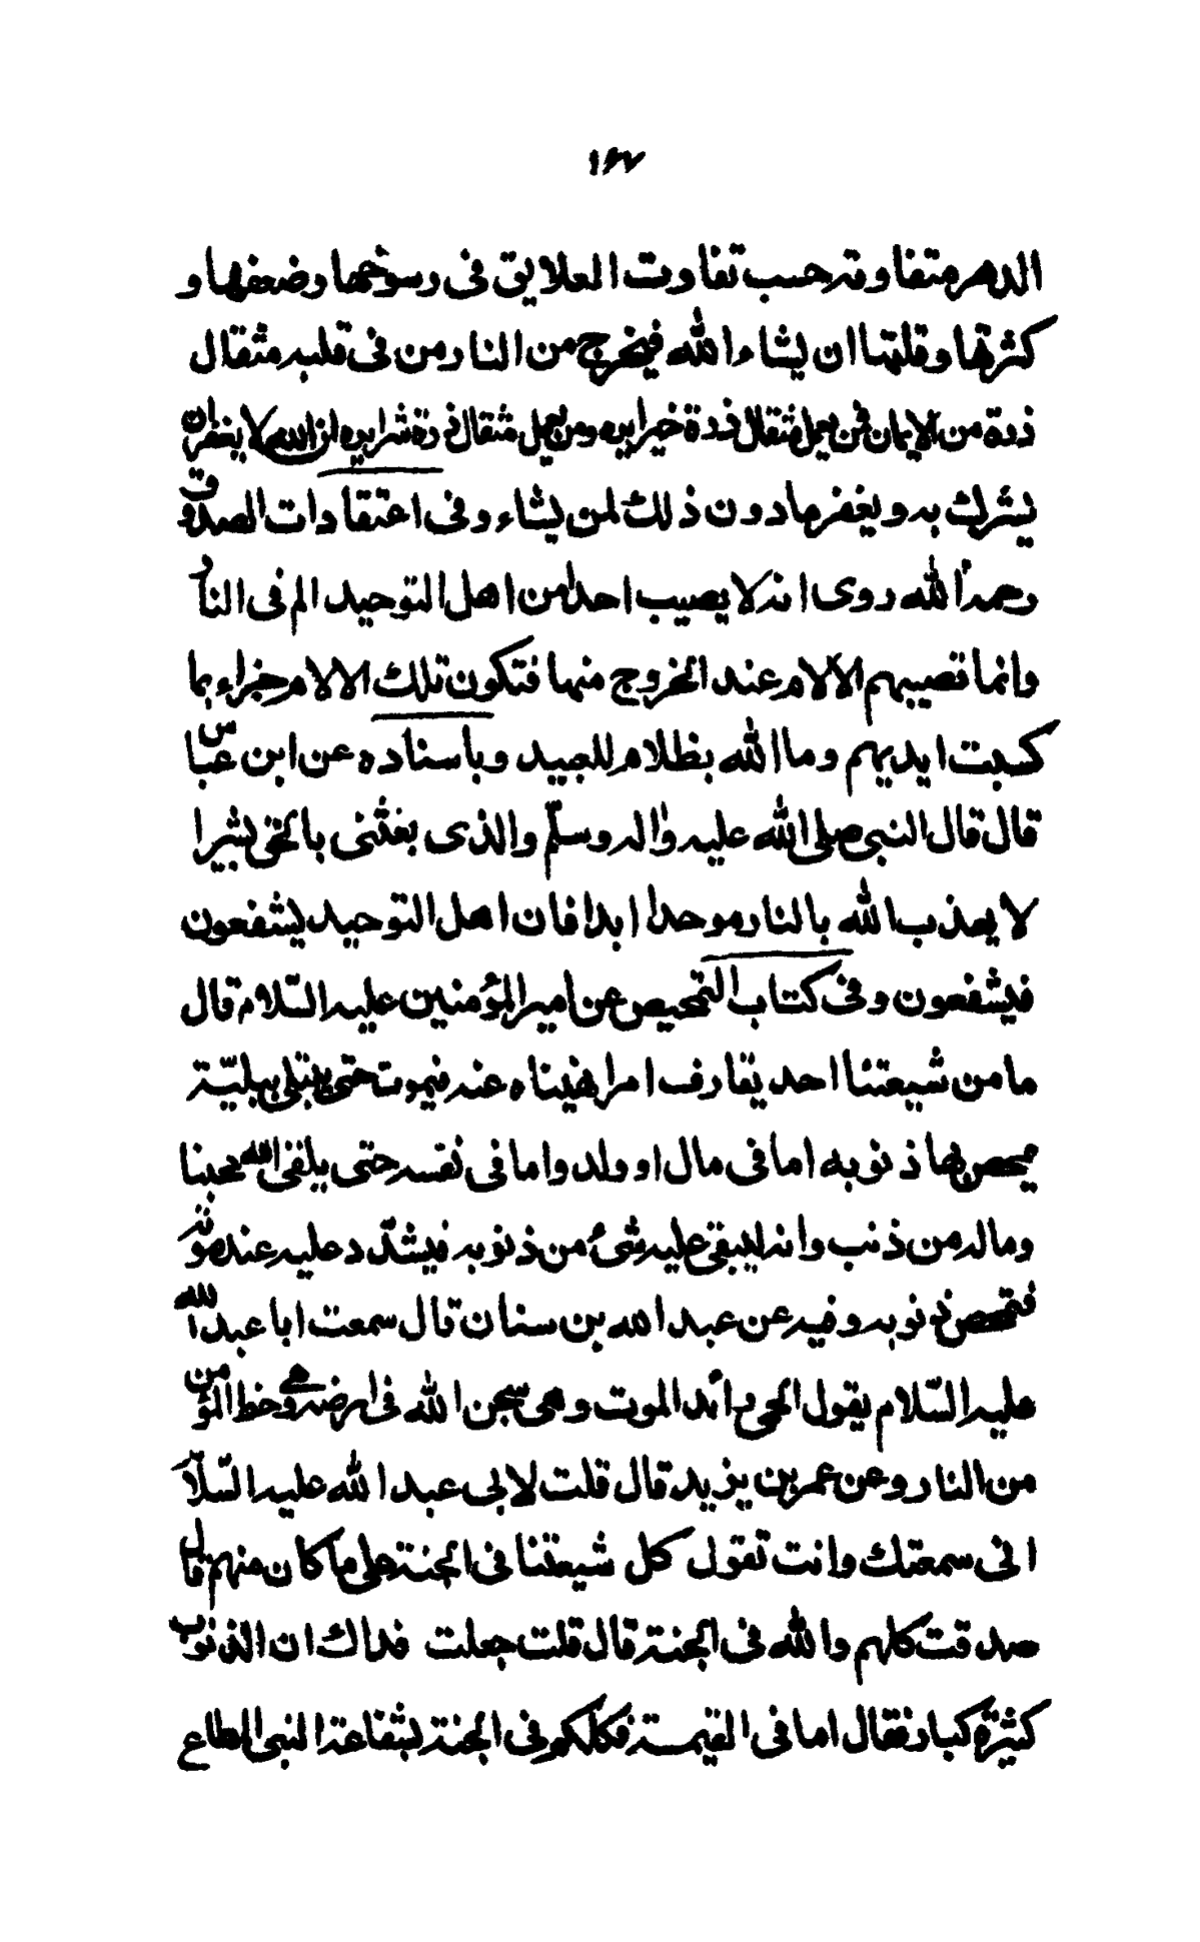 ١٦٧
الدهر متفاوته حسب تفاوت العلايق فى رسوخها وضعفها و
كثرتها وقلتها ان يشاء الله فيخرج من النار من فى قلبه مثقال
ذرة من الايمان فمن يعمل مثقال ذرة خيرا يره ومن يعمل مثقال ذرة شرا يره ان الله لا يغفر ان
يشرك به ويغفر مادون ذلك لمن يشاء وفى اعتقادات الصدوق
رحمه الله روى انه لا يصيب احدا من اهل التوحيد الم فى النار
وانما تصيبهم الالام عند الخروج منها فتكون تلك الالام جزاء بما
كسبت ايديهم وما الله بظلام للعبيد وباسناده عن ابن عبّاس
قال قال النبى صلى الله عليه واله وسلّم والذى بعثنى بالحق بشيرا
لا يعذب الله بالنار موحدا ابدا فان اهل التوحيد ليشفعون
فيشفعون وفى كتاب التمحيص عن امير المؤمنين عليه السّلام قال
ما من شيعتنا احد يقارف امرا نهيناه عنه فيموت حتى يبتلى ببليّة
يمحص بها ذنوبه اما فى مال او ولد واما فى نفسه حتى يلقى الله محبنا
وماله من ذنب وانه ليبقى عليه شئ من ذنوبه فيشدّد عليه عند موته
فتمحص ذنوبه وفيه عن عبد الله بن سنان قال سمعت ابا عبد الله
عليه السّلام يقول الحمى رائد الموت وهى سجن الله فى ارضه وهى حظ المؤمن
من النار وعن عمر بن يزيد قال قلت لابى عبد الله عليه السّلام
انى سمعتك وانت تقول كل شيعتنا فى الجنة على ما كان منهم قال
صدقت كلهم والله فى الجنة قال قلت جعلت فداك ان الذنوب
كثيرة كبار فقال اما فى القيمة فكلكم فى الجنة بشفاعة النبى المطاع